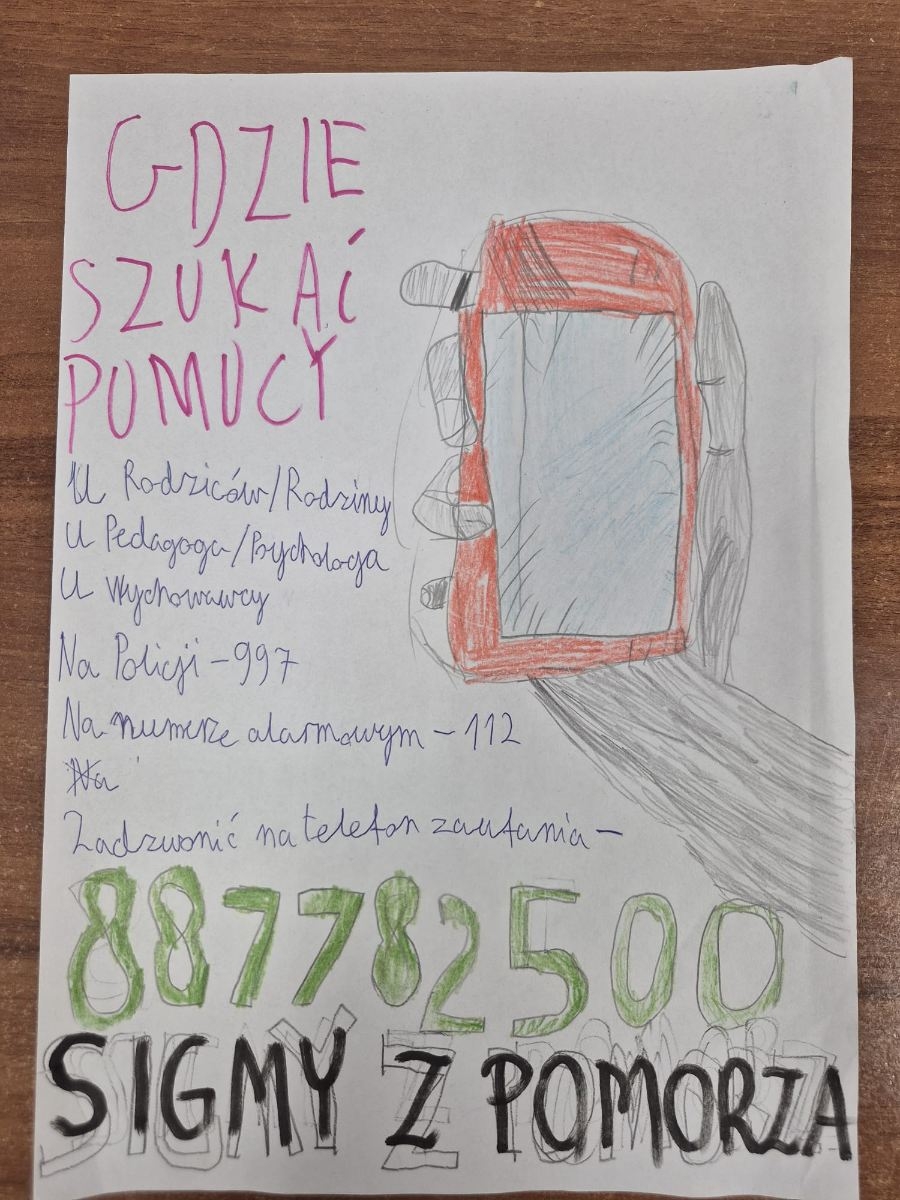 GDZIE
SZUKAĆ
POMOCY
U Rodziców/Rodziny
U Pedagoga/Psychologa
U Wychowawcy
Na Policji - 997
Na numerze alarmowym - 112
Na
Zadzwonić na telefon zaufania -
887782500
SIGMY Z POMORZA